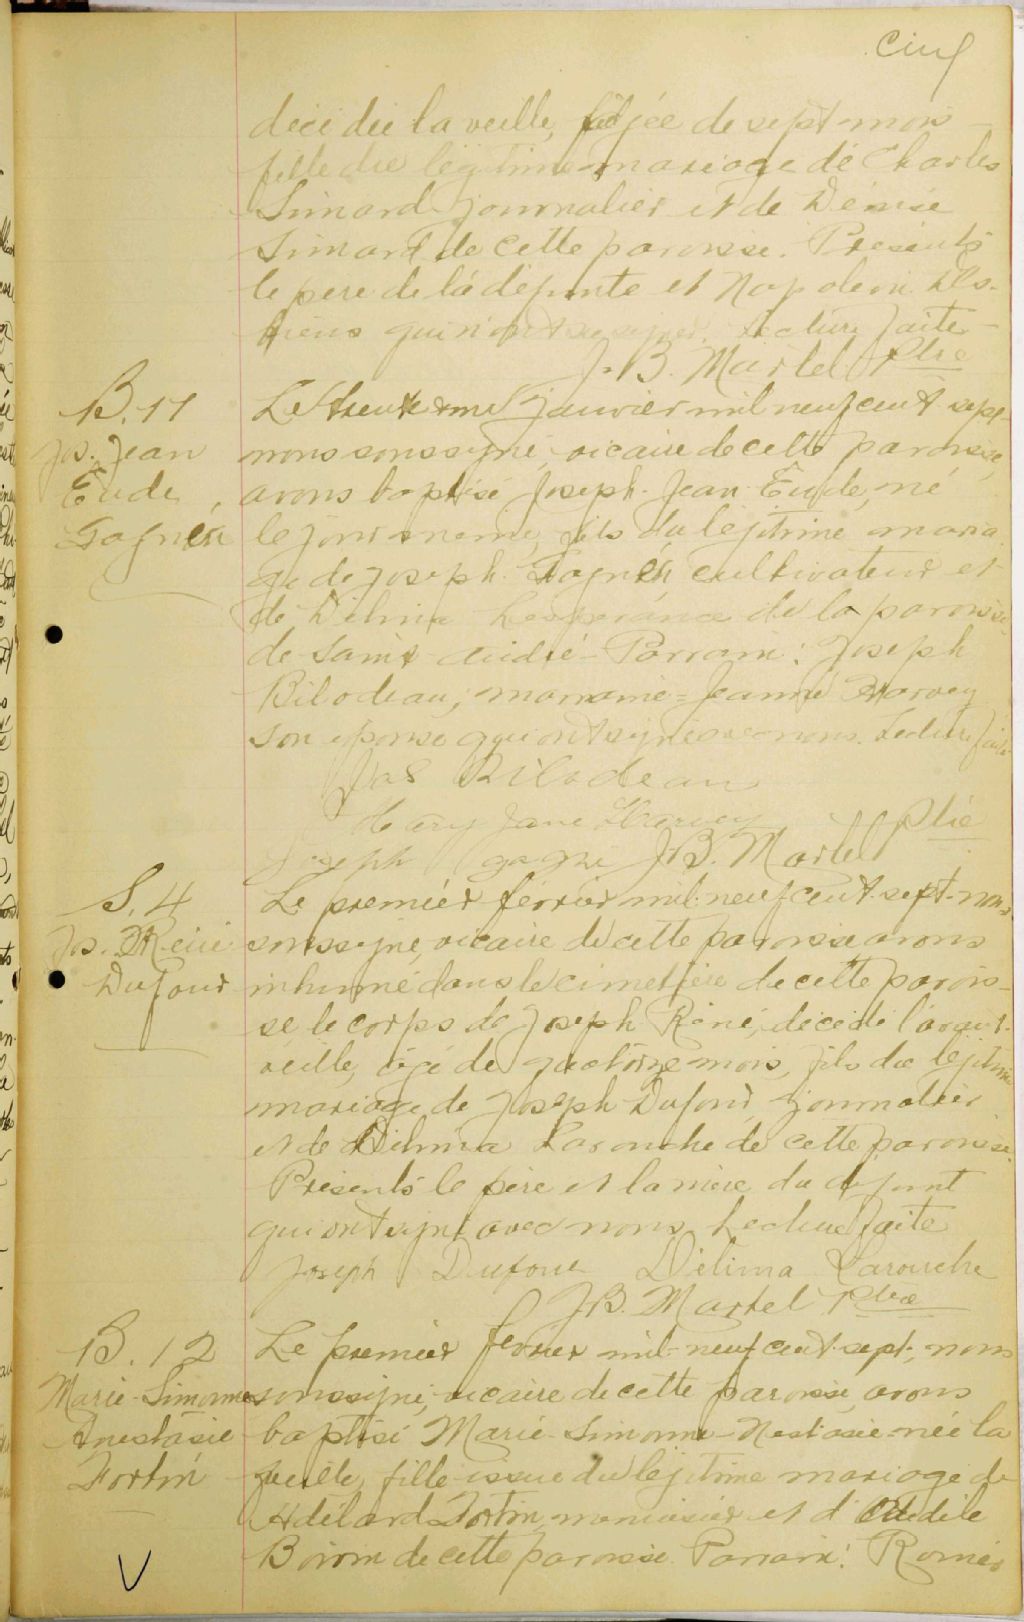 cinq
décédée la veille, âgée de sept mois
fille du légitime mariage de Charles
Simard journalier et de Démise
Simard de cette paroisse. Présents
le père de la défunte et Napoléon Des-
biens qui n'ont su signer. Lecture faite
J. B. Martel Ptre
B. 11
Js. Jean
Eude
Gagnén
Le trente et un janvier mil neuf cent sept
nous soussigné, vicaire de cette paroisse,
avons baptisé Joseph Jean Eude, né
le jour même, fils du légitime maria
ge de Joseph Gagnén cultivateur et
de Délima Lespérance de la paroisse
de Saint André Parrain: Joseph
Bilodeau; marraine = Jeanne Harvey
son épouse qui ont signés avec nous. Lecture faite
Jos Bilodeau
Mary Jane Harvey
Joseph Gagné J.B. Martel Ptre
S. 4
Js. René
Dufour
Le premier février mil neuf cent sept nous
soussigné, vicaire de cette paroisse avons
inhumé dans le cimetière de cette parois-
se le corps de Joseph René, décédé l'avant-
veille, âgé de quatorze mois, fils du légitime
mariage de Joseph Dufour journalier
et de Délima Larouche de cette paroisse.
Présents le père et la mère du défunt
qui ont signé avec nous. Lecture faite
Joseph Dufour Délima Larouche
J.B. Martel Ptre
B. 12
Marie-Simonne
Anestasie
Fortin
V
Le premier février mil neuf cent sept, nous
soussigné, vicaire de cette paroisse, avons
baptisé Marie Simonne Nestasie née la
veille, fille issue du légitime mariage de
Adélard Fortin menuisier et d'
Boivin de cette paroisse. Parrain: